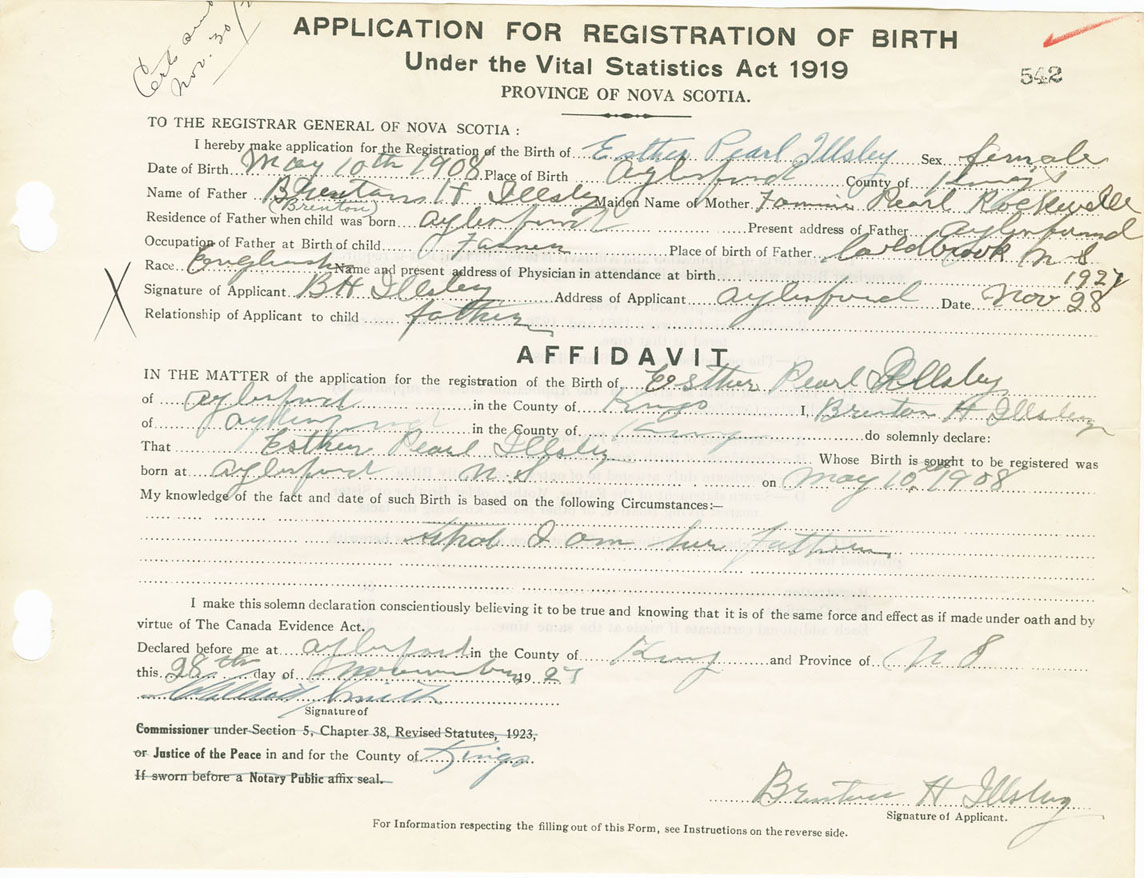 Nov. 30
APPLICATION FOR REGISTRATION OF BIRTH
Under the Vital Statistics Act 1919
542
PROVINCE OF NOVA SCOTIA.
TO THE REGISTRAR GENERAL OF NOVA SCOTIA :
I hereby make application for the Registration of the Birth of Esther Pearl Illsley Sex female
Date of Birth May 10th 1908 Place of Birth Aylesford County of Kings
Name of Father H Illsley Maiden Name of Mother Fannie Pearl Rockwell
(Brenton)
Residence of Father when child was born Aylesford Present address of Father Aylesford
Occupation of Father at Birth of child Farmer Place of birth of Father Coldbrook N S
Race English Name and present address of Physician in attendance at birth
1927
Signature of Applicant B H Illsley Address of Applicant Aylesford Date Nov 28
Relationship of Applicant to child father
X
AFFIDAVIT
IN THE MATTER of the application for the registration of the Birth of Esther Pearl Illsley
of Aylesford in the County of Kings I, Brenton H Illsley
of Aylesford in the County of Kings do solemnly declare:
That Esther Pearl Illsley Whose Birth is sought to be registered was
born at Aylesford N S on May 10th 1908
My knowledge of the fact and date of such Birth is based on the following Circumstances:—
that I am her Father
I make this solemn declaration conscientiously believing it to be true and knowing that it is of the same force and effect as if made under oath and by
virtue of The Canada Evidence Act.
Declared before me at Aylesford in the County of Kings and Province of N S
this 28th day of November 1927
Smith
Signature of
Commissioner under Section 5, Chapter 38, Revised Statutes, 1923,
or Justice of the Peace in and for the County of Kings
If sworn before a Notary Public affix seal.
Brenton H Illsley
Signature of Applicant.
For Information respecting the filling out of this Form, see Instructions on the reverse side.